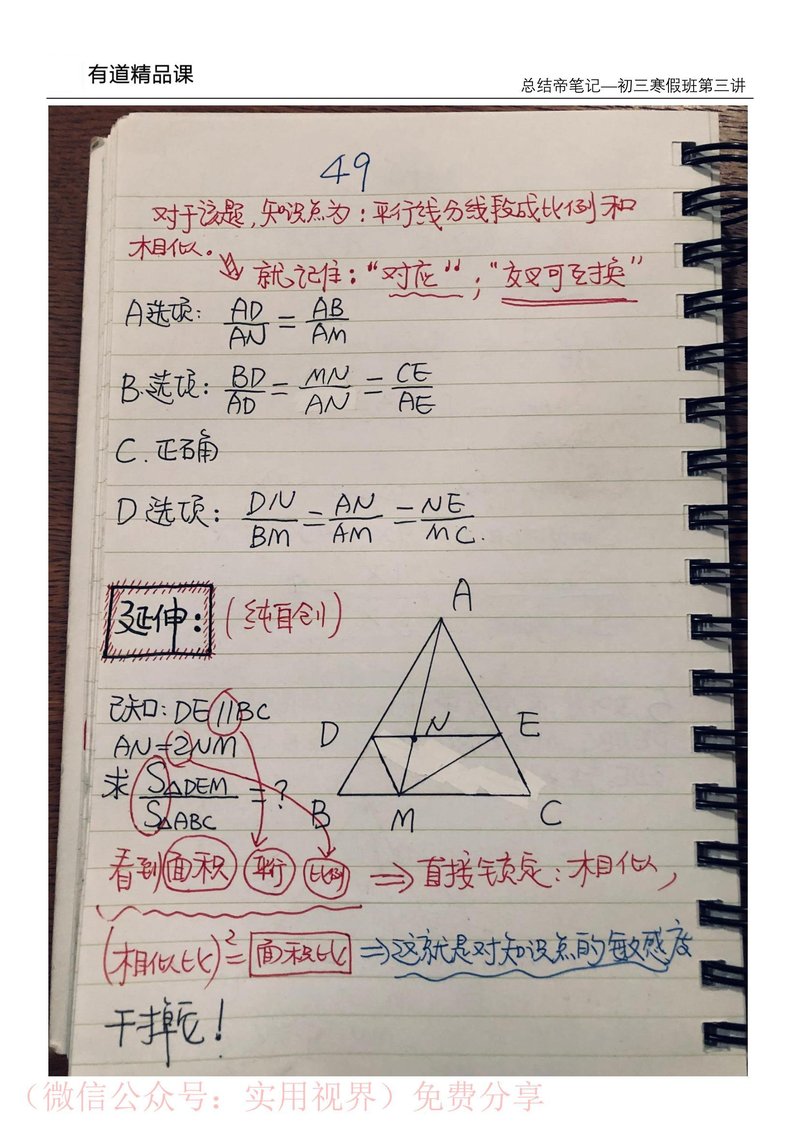 有道精品课
总结帝笔记—初三寒假班第三讲
49
对于该题,知识点为:平行线分线段成比例和
相似。
就记住:“对应”;“交叉可互换”
A选项: AD/AN = AB/AM
B.选项: BD/AD = MN/AN = CE/AE
C.正确
D选项: DN/BM = AN/AM = NE/MC.
延伸:(纯自创)
已知:DE//BC
AN=2NM
求 S△DEM/S△ABC = ?
A
D
N
E
B
M
C
看到面积 平行 比例 ⇒直接锁定:相似,
(相似比)²=面积比 ⇒这就是对知识点的敏感度
干掉它!
(微信公众号:实用视界)免费分享